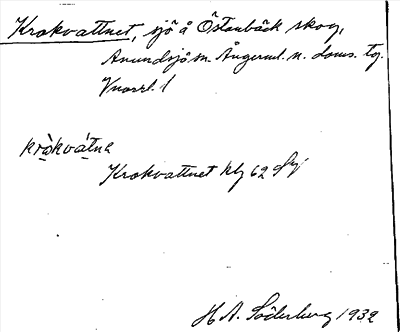 Krokvattnet, sjö å Östanbäck skog,
Anundsjö sn. Ångerml. n. doms. tg.
kròkvátne
Krokvattnet kbj 62 Sj
H. A. Söderberg 1932